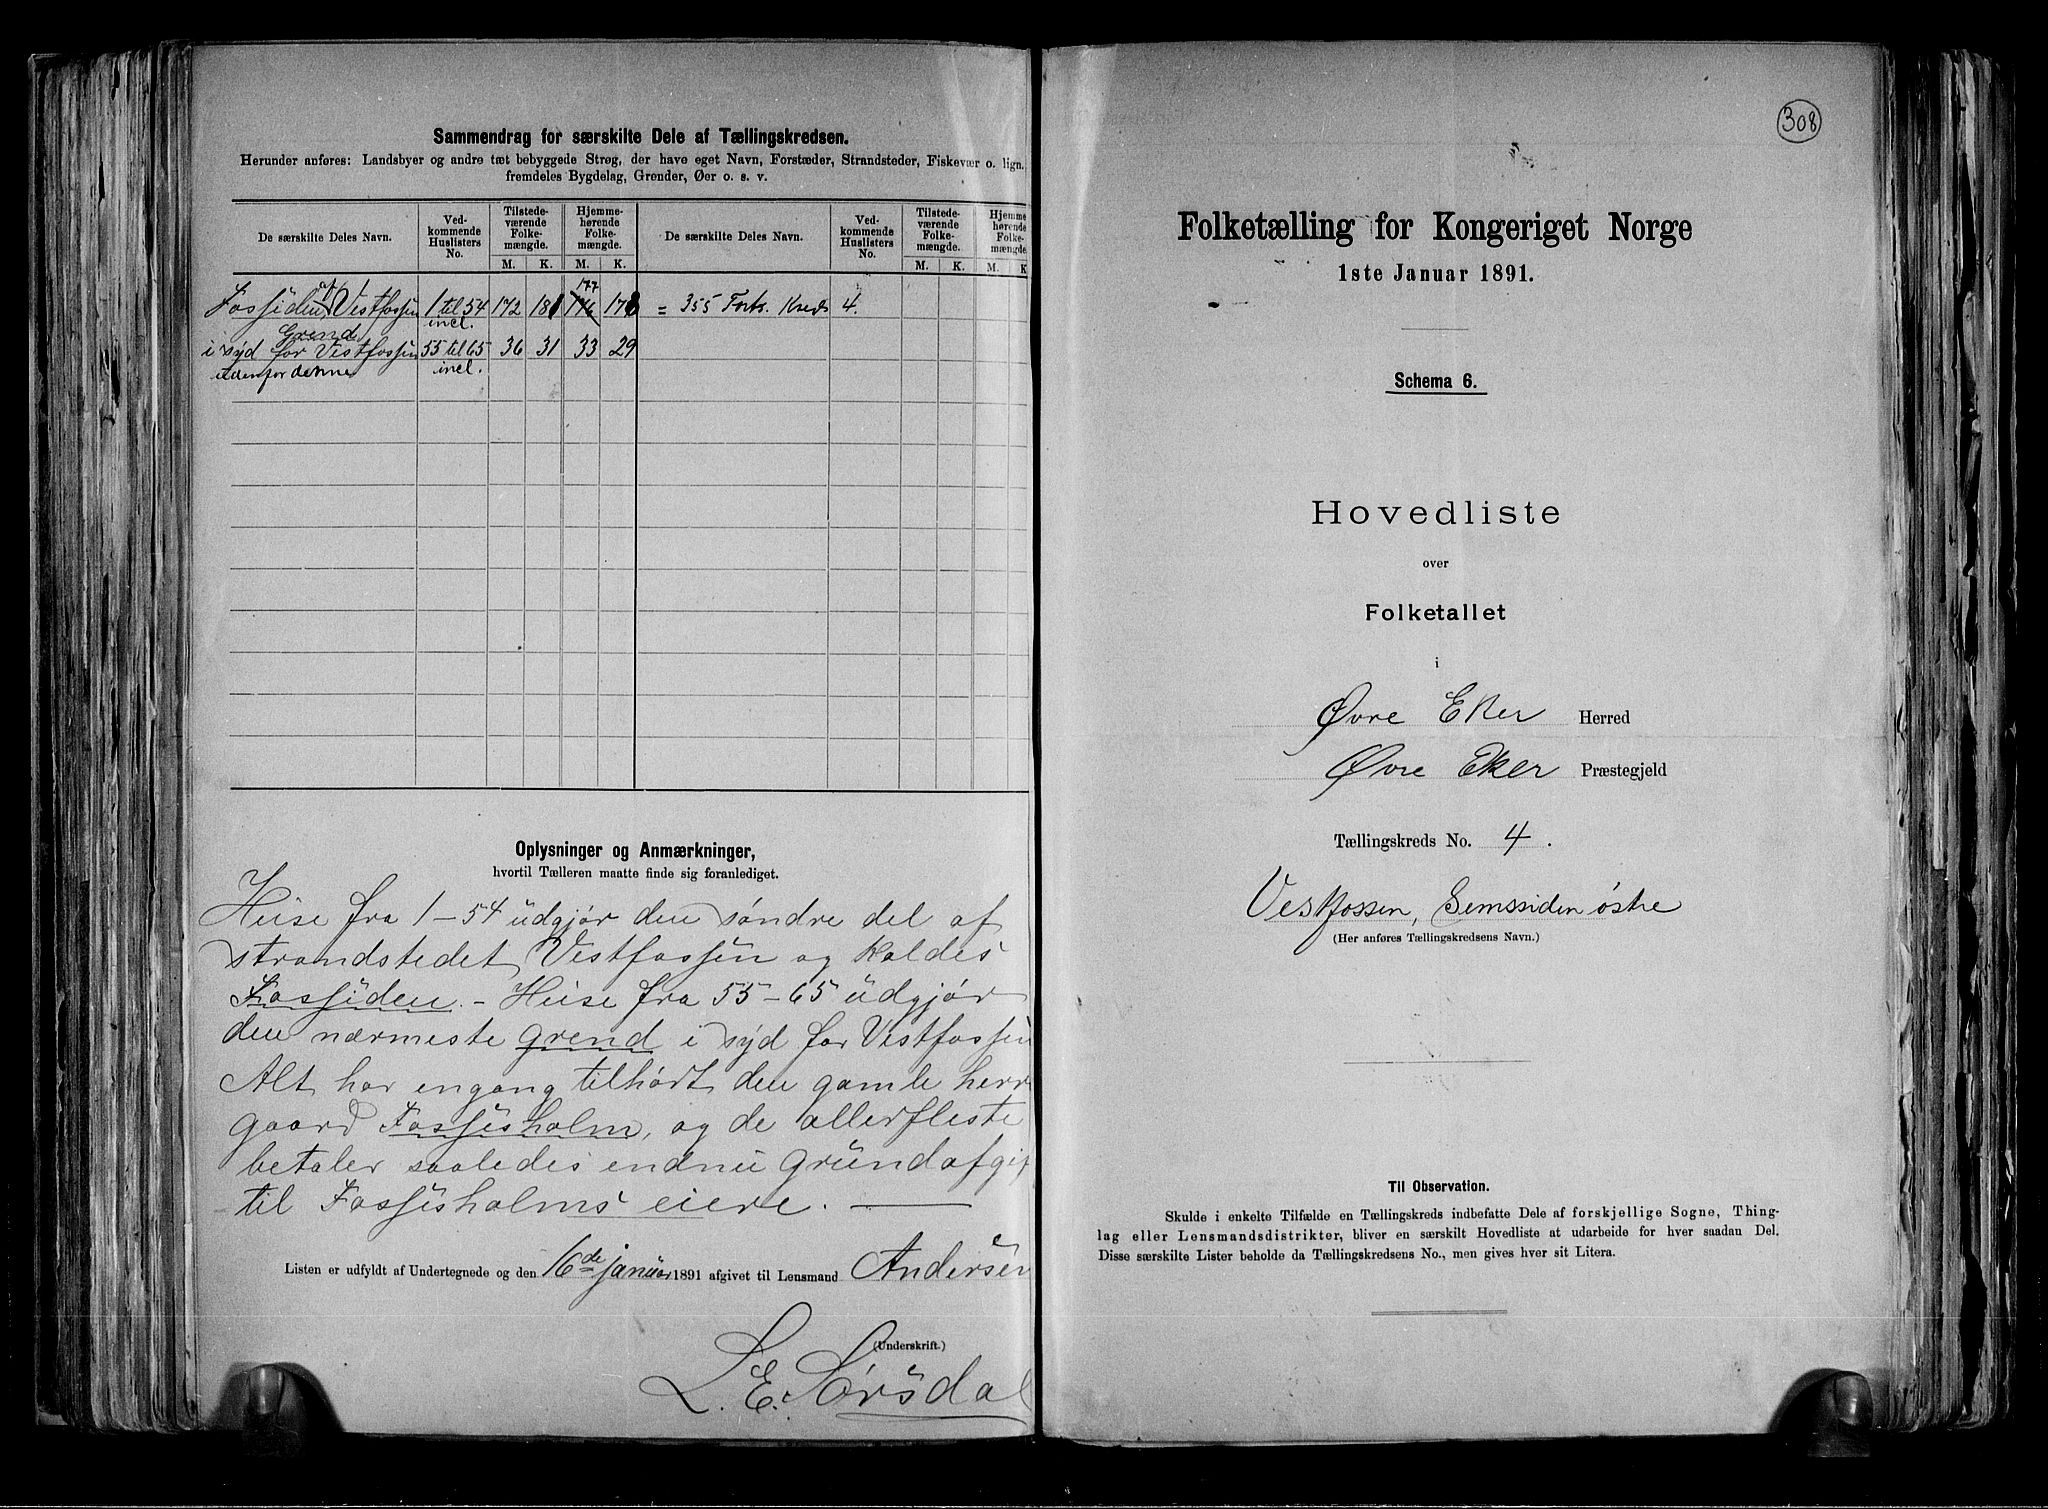 Sammendrag for særskilte Dele af Tællingskredsen.
Herunder anføres: Landsbyer og andre tæt bebyggede Strøg, der have eget Navn, Forstæder, Strandsteder, Fiskevær o. lign.
fremdeles Bygdelag, Grender, Øer o. s. v.
De særskilte Deles Navn. Ved-kommende Huslisters No. Tilstede-værende Folke-mængde. Hjemme-hørende Folke-mængde. De særskilte Deles Navn. Ved-kommende Huslisters No. Tilstede-værende Folke-mængde. Hjemme-hørende Folke-mængde.
M. K. M. K. M. K. M. K
Fossiden af Vestfossen 1 til 54 incl. 172 181 176 177 178 = 355 Forts. Kreds 4.
Grend
i syd for Vestfossen 55 til 65 incl. 36 31 33 29
udenfor denne
Oplysninger og Anmærkninger,
hvortil Tælleren maatte finde sig foranlediget.
Huse fra 1-54 udgjør den søndre del af
strandstedet Vestfossen og kaldes
Fossiden. - Huse fra 55-65 udgjør
den nærmeste grend i syd for Vestfossen
Alt har engang tilhørt den gamle herr
gaard Fossesholm, og de allerfleste
betaler saaledes endnu grundafgift
til Fossesholms eiere. —
Listen er udfyldt af Undertegnede og den 16de januar 1891 afgivet til Lensmand Andersen
(Underskrift.)
L. E. Sørsdal
308
Folketælling for Kongeriget Norge
1ste Januar 1891.
Schema 6.
Hovedliste
over
Folketallet
i
Øvre Eker Herred
Øvre Eker Præstegjeld
Tællingskreds No. 4.
Vestfossen, Semssiden østre
(Her anføres Tællingskredsens Navn.)
Til Observation.
Skulde i enkelte Tilfælde en Tællingskreds indbefatte Dele af forskjellige Sogne, Thing-
lag eller Lensmandsdistrikter, bliver en særskilt Hovedliste at udarbeide for hver saadan Del.
Disse særskilte Lister beholde da Tællingskredsens No., men gives hver sit Litera.